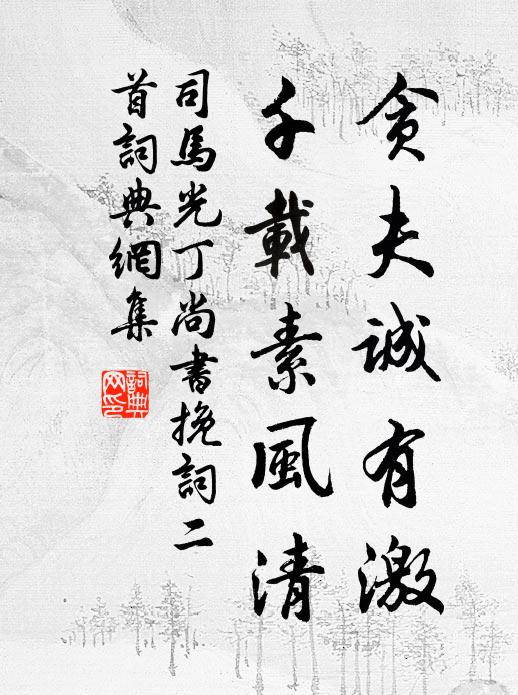 貪夫誠有激
千載素風清
司馬光丁尚書挽詞二
首詞典網集
詞典
網印